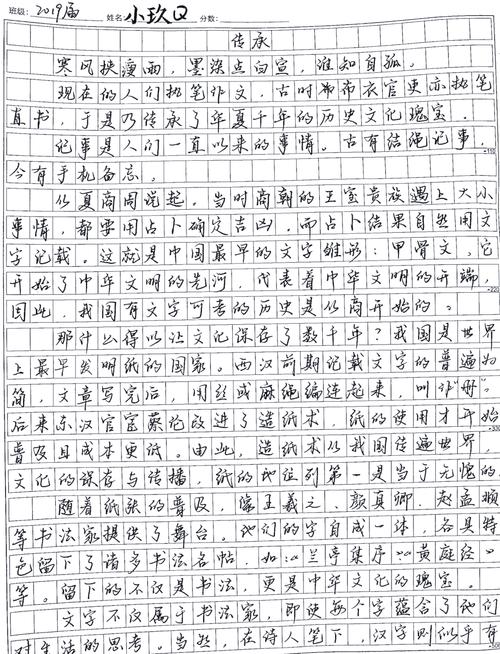 班级：2019届 姓名：小玖Q 分数：
传承
寒风挟瘦雨，墨染点白宣，谁知自孤。
现在的人们执笔作文，古时布衣官吏亦执笔
直书，于是乃传承了华夏千年的历史文化瑰宝。
记事是人们一直以来的事情。古有结绳记事，
今有手机备忘。
从夏商周说起，当时商朝的王室贵族遇上大小
事情，都要用占卜确定吉凶，而占卜结果自然用文
字记载。这就是中国最早的文字雏形：甲骨文，它
开始了中华文明的先河，代表着中华文明的开端，
因此，我国有文字可考的历史是从商开始的。
那什么得以让文化保存了数千年？我国是世界
上最早发明纸的国家。西汉前期记载文字的普遍为
简，文章写完后，用丝或麻绳编连起来，叫作“册”。
后来东汉宦官蔡伦改进了造纸术，纸的使用才开始
普及且成本更低。由此，造纸术从我国传遍世界，
文化的保存与传播，纸的地位列第一是当于无愧的
随着纸张的普及，像王羲之、颜真卿、赵孟頫
等书法家提供了舞台。他们的字自成一体，各具特
色留下了诸多书法名帖，如：《兰亭集序》《黄庭经》
等。留下的不仅是书法，更是中华文化的瑰宝。
文字不仅属于书法家，即使每个字蕴含了他们
对生活的思考。当然，在诗人笔下，汉字则似乎有